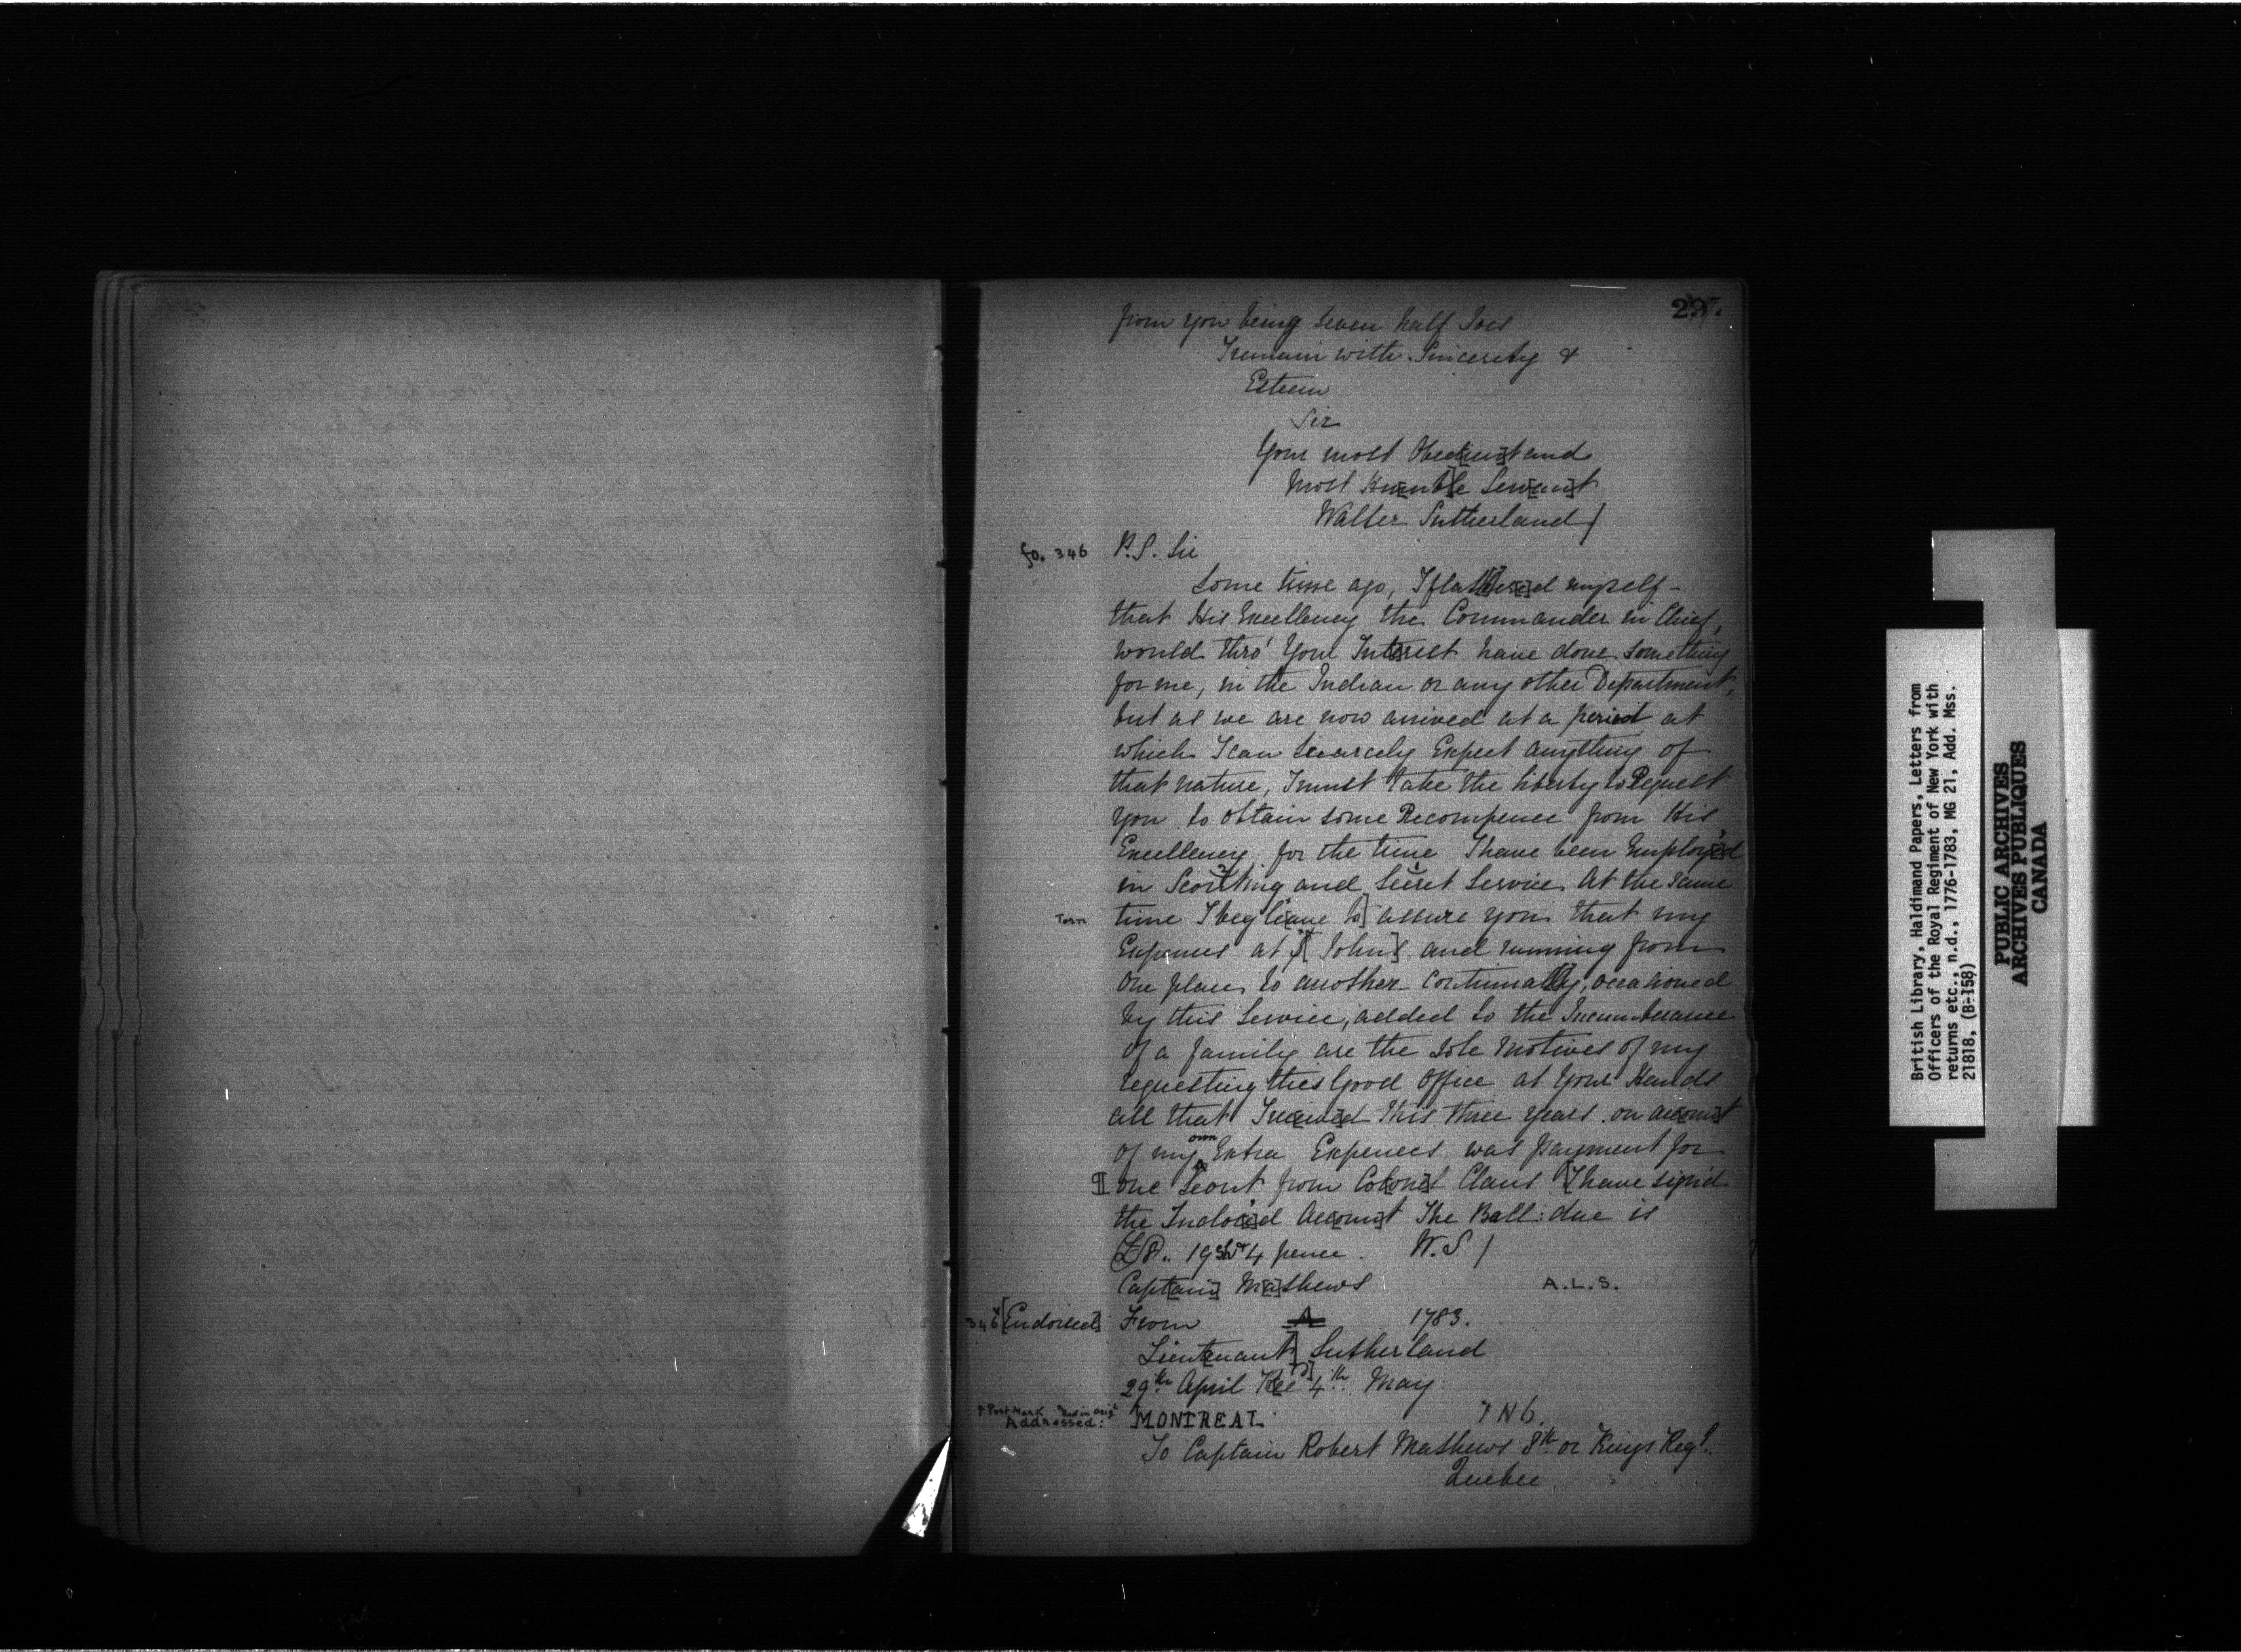 297.
from you being seven half Joes
I remain with Sincerity &
Esteem
Sir
Your most Obed[ien]t and
Most Hu[m]b[l]e Serv[an]t
Walter Sutherland /
fo. 346 P.S. Sir
Some time ago, I flat[t]er[e]d myself -
that His Excellency the Commander in Chief,
would thro' Your Interest have done something
for me, in the Indian or any other Department,
but as we are now arrived at a period at
which I can scarcely Expect anything of
that nature, I must take the liberty to Request
you to obtain some Recompence from His
Excellency for the time I have been Employ[e]d
in Scouting and Secret Service. At the same
Torn time I beg l[eave to] assure you that my
Expences at St [John]s and running from
one place to another continual[l]y, occasioned
by this Service, added to the Incumberance
of a family are the sole motives of my
requesting this Good Office at Your Hands
all that I rec[eive]d this three years on acc[oun]t
of my own Extra Expences was payment for
¶ one Scout from Co[lone]l Claus [I have sign'd
the Inclos[e]d Acc[oun]t The Ball: due is
£8.. 19 sh & 4 pence. W. S /
Capt[ain] M[a]thews A.L.S.
346v [Endorsed] From A 1783.
Lieut[enant] Sutherland
29th April Rec[d] 4th May
+ Post Mark Red in Orig[l]
Addressed: MONTREAL 7 N 6.
To Captain Robert Mathews 8th or Kings Regt.
Quebec
British Library, Haldimand Papers, Letters from
Officers of the Royal Regiment of New York with
returns etc., n.d., 1776-1783, MG 21, Add. Mss.
21818, (B-158)
PUBLIC ARCHIVES
ARCHIVES PUBLIQUES
CANADA